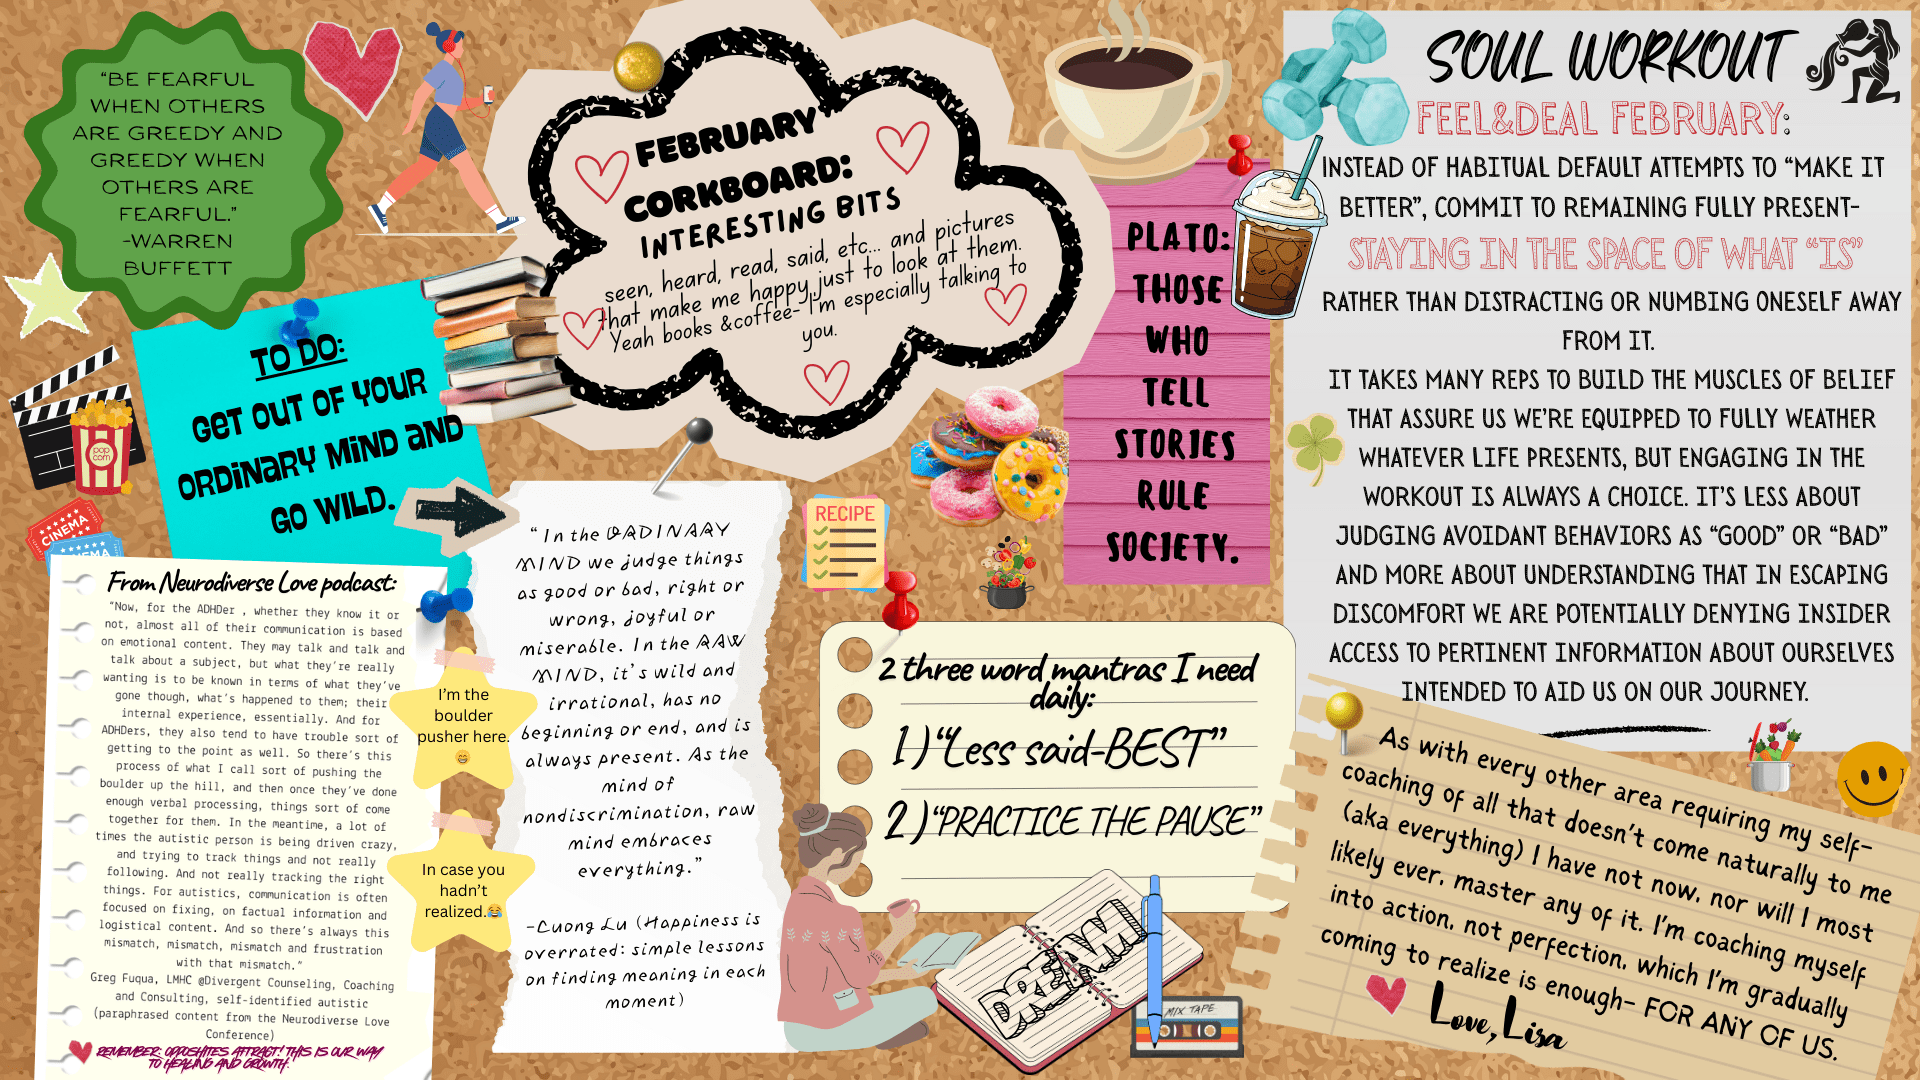 “BE FEARFUL
WHEN OTHERS
ARE GREEDY AND
GREEDY WHEN
OTHERS ARE
FEARFUL.”
-WARREN
BUFFETT
FEBRUARY
CORKBOARD:
INTERESTING BITS
seen, heard, read, said, etc... and pictures
that make me happy just to look at them.
Yeah books &coffee- I'm especially talking to
you.
TO DO:
GET OUT OF YOUR
ORDINARY MIND AND
GO WILD.
POP
CORN
CINEMA
From Neurodiverse Love podcast:
“Now, for the ADHDer , whether they know it or
not, almost all of their communication is based
on emotional content. They may talk and talk and
talk about a subject, but what they're really
wanting is to be known in terms of what they've
gone though, what's happened to them; their
internal experience, essentially. And for
ADHDers, they also tend to have trouble sort of
getting to the point as well. So there's this
process of what I call sort of pushing the
boulder up the hill, and then once they've done
enough verbal processing, things sort of come
together for them. In the meantime, a lot of
times the autistic person is being driven crazy,
and trying to track things and not really
following. And not really tracking the right
things. For autistics, communication is often
focused on fixing, on factual information and
logistical content. And so there's always this
mismatch, mismatch, mismatch and frustration
with that mismatch.”
Greg Fuqua, LMHC @Divergent Counseling, Coaching
and Consulting, self-identified autistic
(paraphrased content from the Neurodiverse Love
Conference)
REMEMBER: OPPOSITES ATTRACT! THIS IS OUR WAY
TO HEALING AND GROWTH.
I'm the
boulder
pusher here.
😄
In case you
hadn't
realized.😂
“In the ORDINARY
MIND we judge things
as good or bad, right or
wrong, joyful or
miserable. In the RAW
MIND, it's wild and
irrational, has no
beginning or end, and is
always present. As the
mind of
nondiscrimination, raw
mind embraces
everything.”
-Cuong Lu (Happiness is
overrated: simple lessons
on finding meaning in each
moment)
RECIPE
PLATO:
THOSE
WHO
TELL
STORIES
RULE
SOCIETY.
2 three word mantras I need
daily:
1)“Less said-BEST”
2)“PRACTICE THE PAUSE”
DREAM!
MIX TAPE
SOUL WORKOUT
FEEL&DEAL FEBRUARY:
INSTEAD OF HABITUAL DEFAULT ATTEMPTS TO “MAKE IT
BETTER”, COMMIT TO REMAINING FULLY PRESENT-
STAYING IN THE SPACE OF WHAT “IS”
RATHER THAN DISTRACTING OR NUMBING ONESELF AWAY
FROM IT.
IT TAKES MANY REPS TO BUILD THE MUSCLES OF BELIEF
THAT ASSURE US WE'RE EQUIPPED TO FULLY WEATHER
WHATEVER LIFE PRESENTS, BUT ENGAGING IN THE
WORKOUT IS ALWAYS A CHOICE. IT'S LESS ABOUT
JUDGING AVOIDANT BEHAVIORS AS “GOOD” OR “BAD”
AND MORE ABOUT UNDERSTANDING THAT IN ESCAPING
DISCOMFORT WE ARE POTENTIALLY DENYING INSIDER
ACCESS TO PERTINENT INFORMATION ABOUT OURSELVES
INTENDED TO AID US ON OUR JOURNEY.
As with every other area requiring my self-
coaching of all that doesn't come naturally to me
(aka everything) I have not now, nor will I most
likely ever, master any of it. I'm coaching myself
into action, not perfection, which I'm gradually
coming to realize is enough- FOR ANY OF US.
Love, Lisa